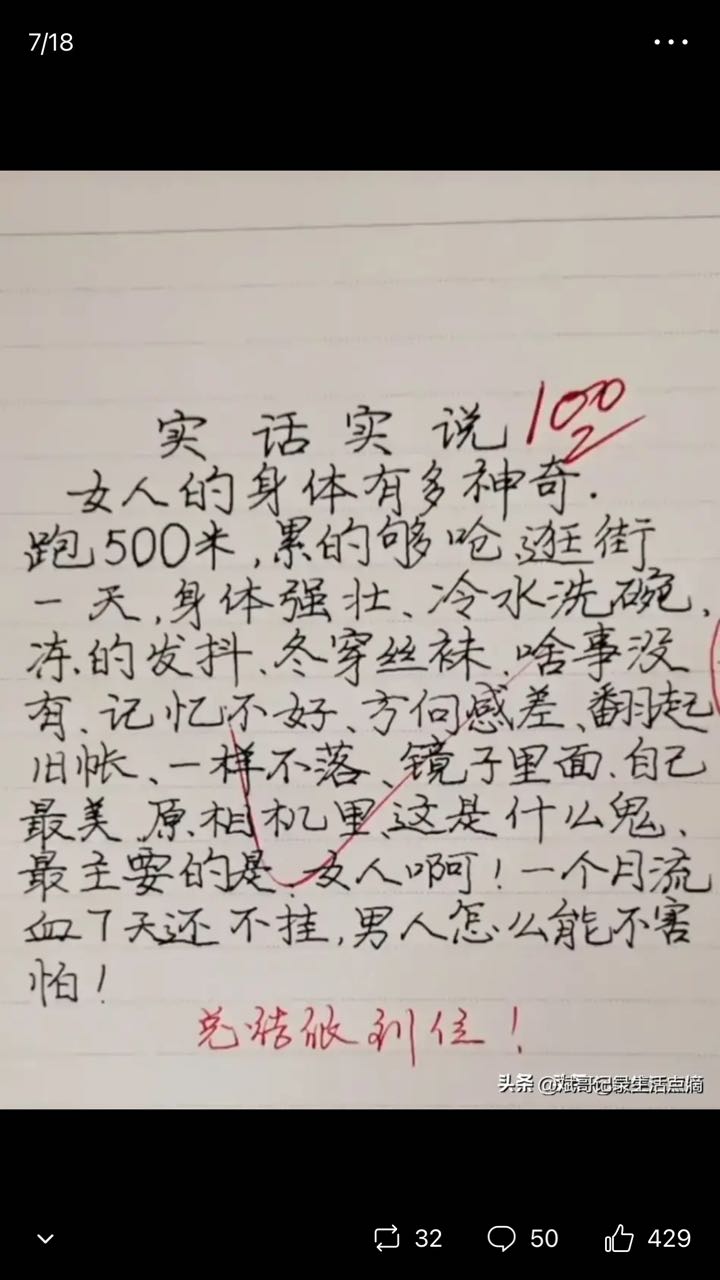 7/18
实话实说 100
女人的身体有多神奇.
跑500米,累的够呛、逛街
一天,身体强壮、冷水洗碗,
冻的发抖、冬穿丝袜、啥事没
有、记忆不好、方向感差、翻起
旧帐、一样不落、镜子里面、自己
最美、原相机里、这是什么鬼、
最主要的是、女人啊!一个月流
血7天还不挂,男人怎么能不害
怕!
总结的到位!
头条 @斌哥记录生活点滴
32 50 429